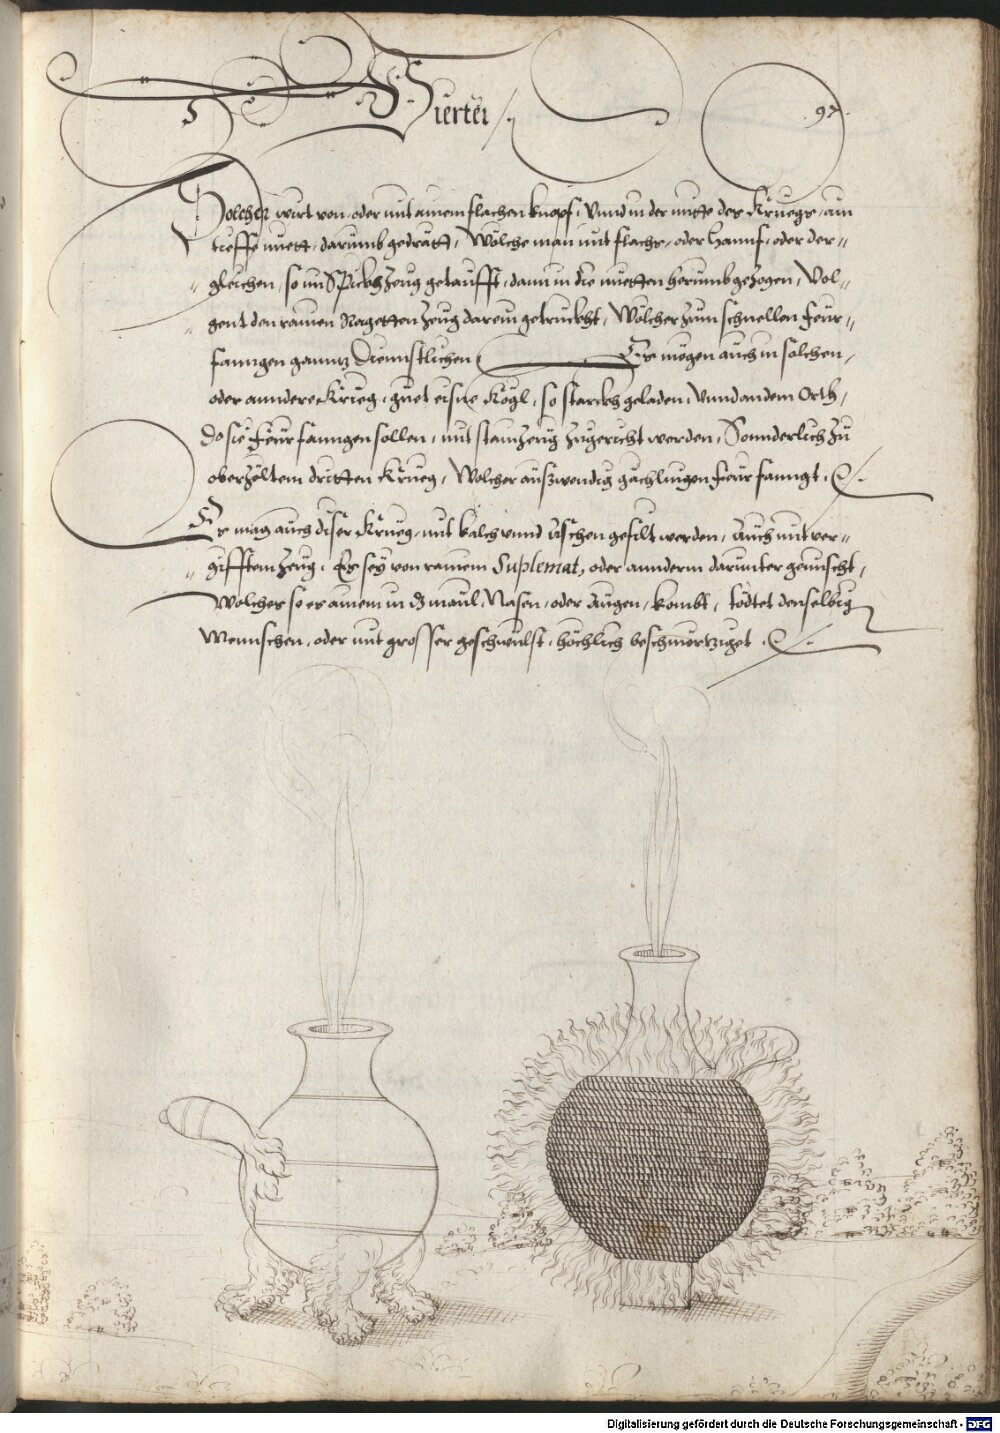 Vierter
97.
Solcher wirt von, oder mit ainem flachen knopf, Vnnd in der mitte des Kruegs, ain
tieffe nuett, darumb gedrätt, Wölche man mit flachs, oder Hannf, oder der=
=gleichen, so in Spickhzeug getaufft, dann in die nuetten herumb gezogen, Vol=
=gent den rauen Ragetten Zeug darein getruckht, Wölcher zum schnellen Feur=
fanngen ganntz Diennstlichen Es mögen auch in solchen,
oder anndere Krüeg, guet eisne Kögl, so starckh geladen, Vnnd an dem Orth,
do sie Feur fanngen sollen, mit stainzeug zugericht werden, Sonnderlich zu
oberzöltem dritten Krueg, Wölcher auszwendig gächlingen Feur fanngt.
Es mag auch diser Krueg, mit kalch vnnd Aschen gefilt werden, Auch mit ver=
=gifftem Zeug, Es sey von rainem Suplemat, oder annderm darunter gemischt,
Wölcher so er ainem in dz maul, Nasen, oder Augen, kombt, tödtet denselbig
Mennschen, oder mit grosser geschwulst, höchlich beschmertziget.
Digitalisierung gefördert durch die Deutsche Forschungsgemeinschaft - DFG